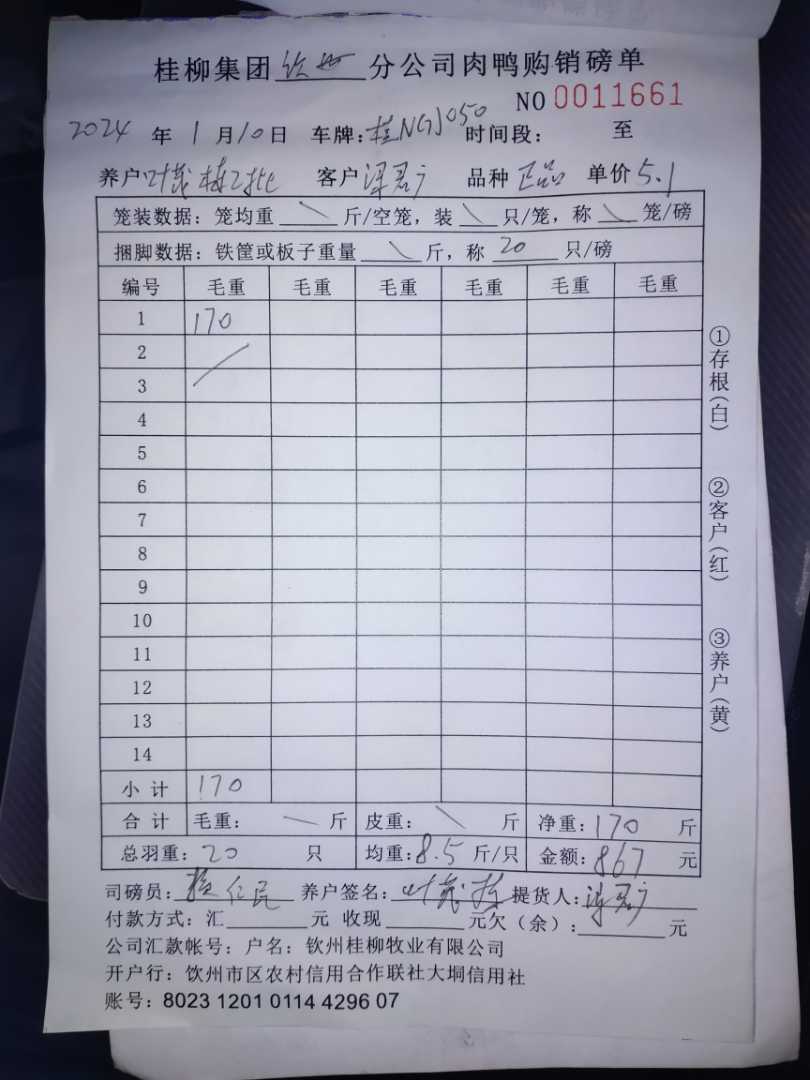 桂柳集团 钦州 分公司肉鸭购销磅单
NO 0011661
2024 年 1 月 10 日 车牌: 桂N 050 时间段: 至
养户 叶茂栋 客户 品种 正品 单价 5.1
笼装数据: 笼均重 \ 斤/空笼, 装 \ 只/笼, 称 \ 笼/磅
捆脚数据: 铁筐或板子重量 \ 斤, 称 20 只/磅
编号 毛重 毛重 毛重 毛重 毛重 毛重
1 170
2
3
4
5
6
7
8
9
10
11
12
13
14
小 计 170
合 计 毛重: — 斤 皮重: \ 斤 净重: 170 斤
总羽重: 20 只 均重: 8.5 斤/只 金额: 867 元
司磅员: 仁民 养户签名: 叶茂栋 提货人:
付款方式: 汇 元 收现 元欠（余）: 元
公司汇款帐号: 户名: 钦州桂柳牧业有限公司
开户行: 饮州市区农村信用合作联社大垌信用社
账号: 8023 1201 0114 4296 07
①存根(白)
②客户(红)
③养户(黄)